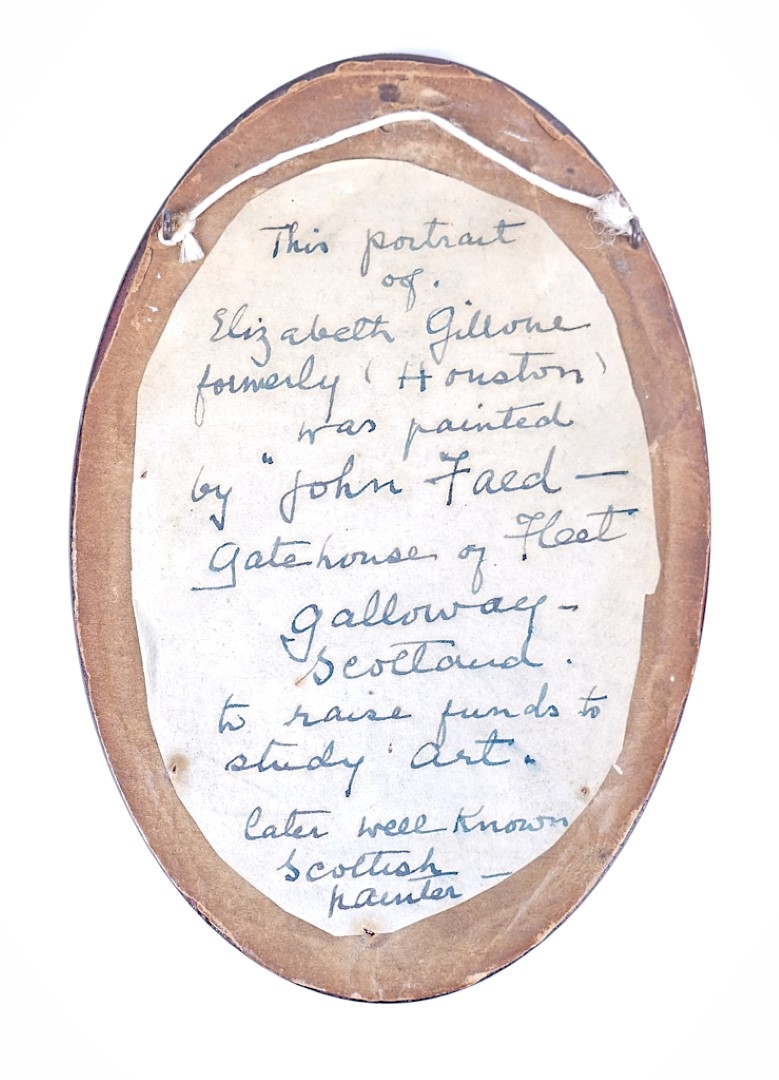 This portrait
of.
Elizabeth Gillone
formerly ( Houston )
was painted
by " John Faed —
Gatehouse of Fleet
Galloway -
Scotland .
to raise funds to
study art.
later well known
Scottish
painter —